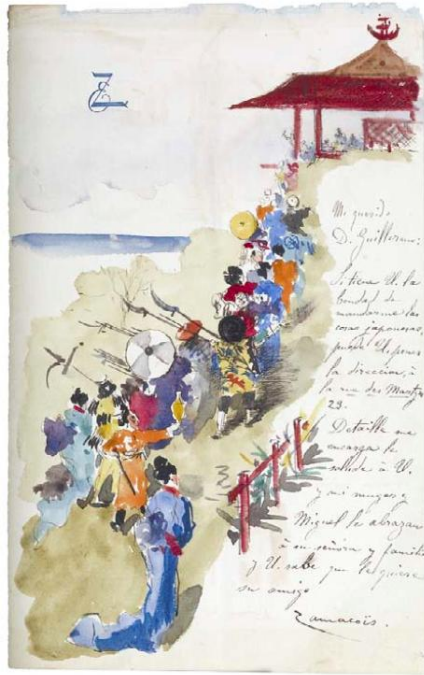 Mi querido
D. Guillermo:
Si tiene U. la
bondad de
mandarme las
cosas japonesas,
puede U. poner
la direccion, à
la rue des Martyrs
29.
Detaille me
encarga le
salude à U.
y mi muger y
Miguel le abrazan
à su señora y familia
y U. sabe que le quiere
su amigo
Zamacois.